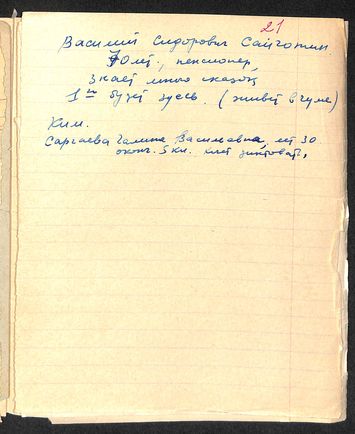 21
Василий Сидорович Сайготин.
70 лет, пенсионер,
знает много сказок
1го будет здесь. (живёт в чуме)
Ким.
Саргаева Галина Васильевна, лет 30.
оконч. 5 кл.